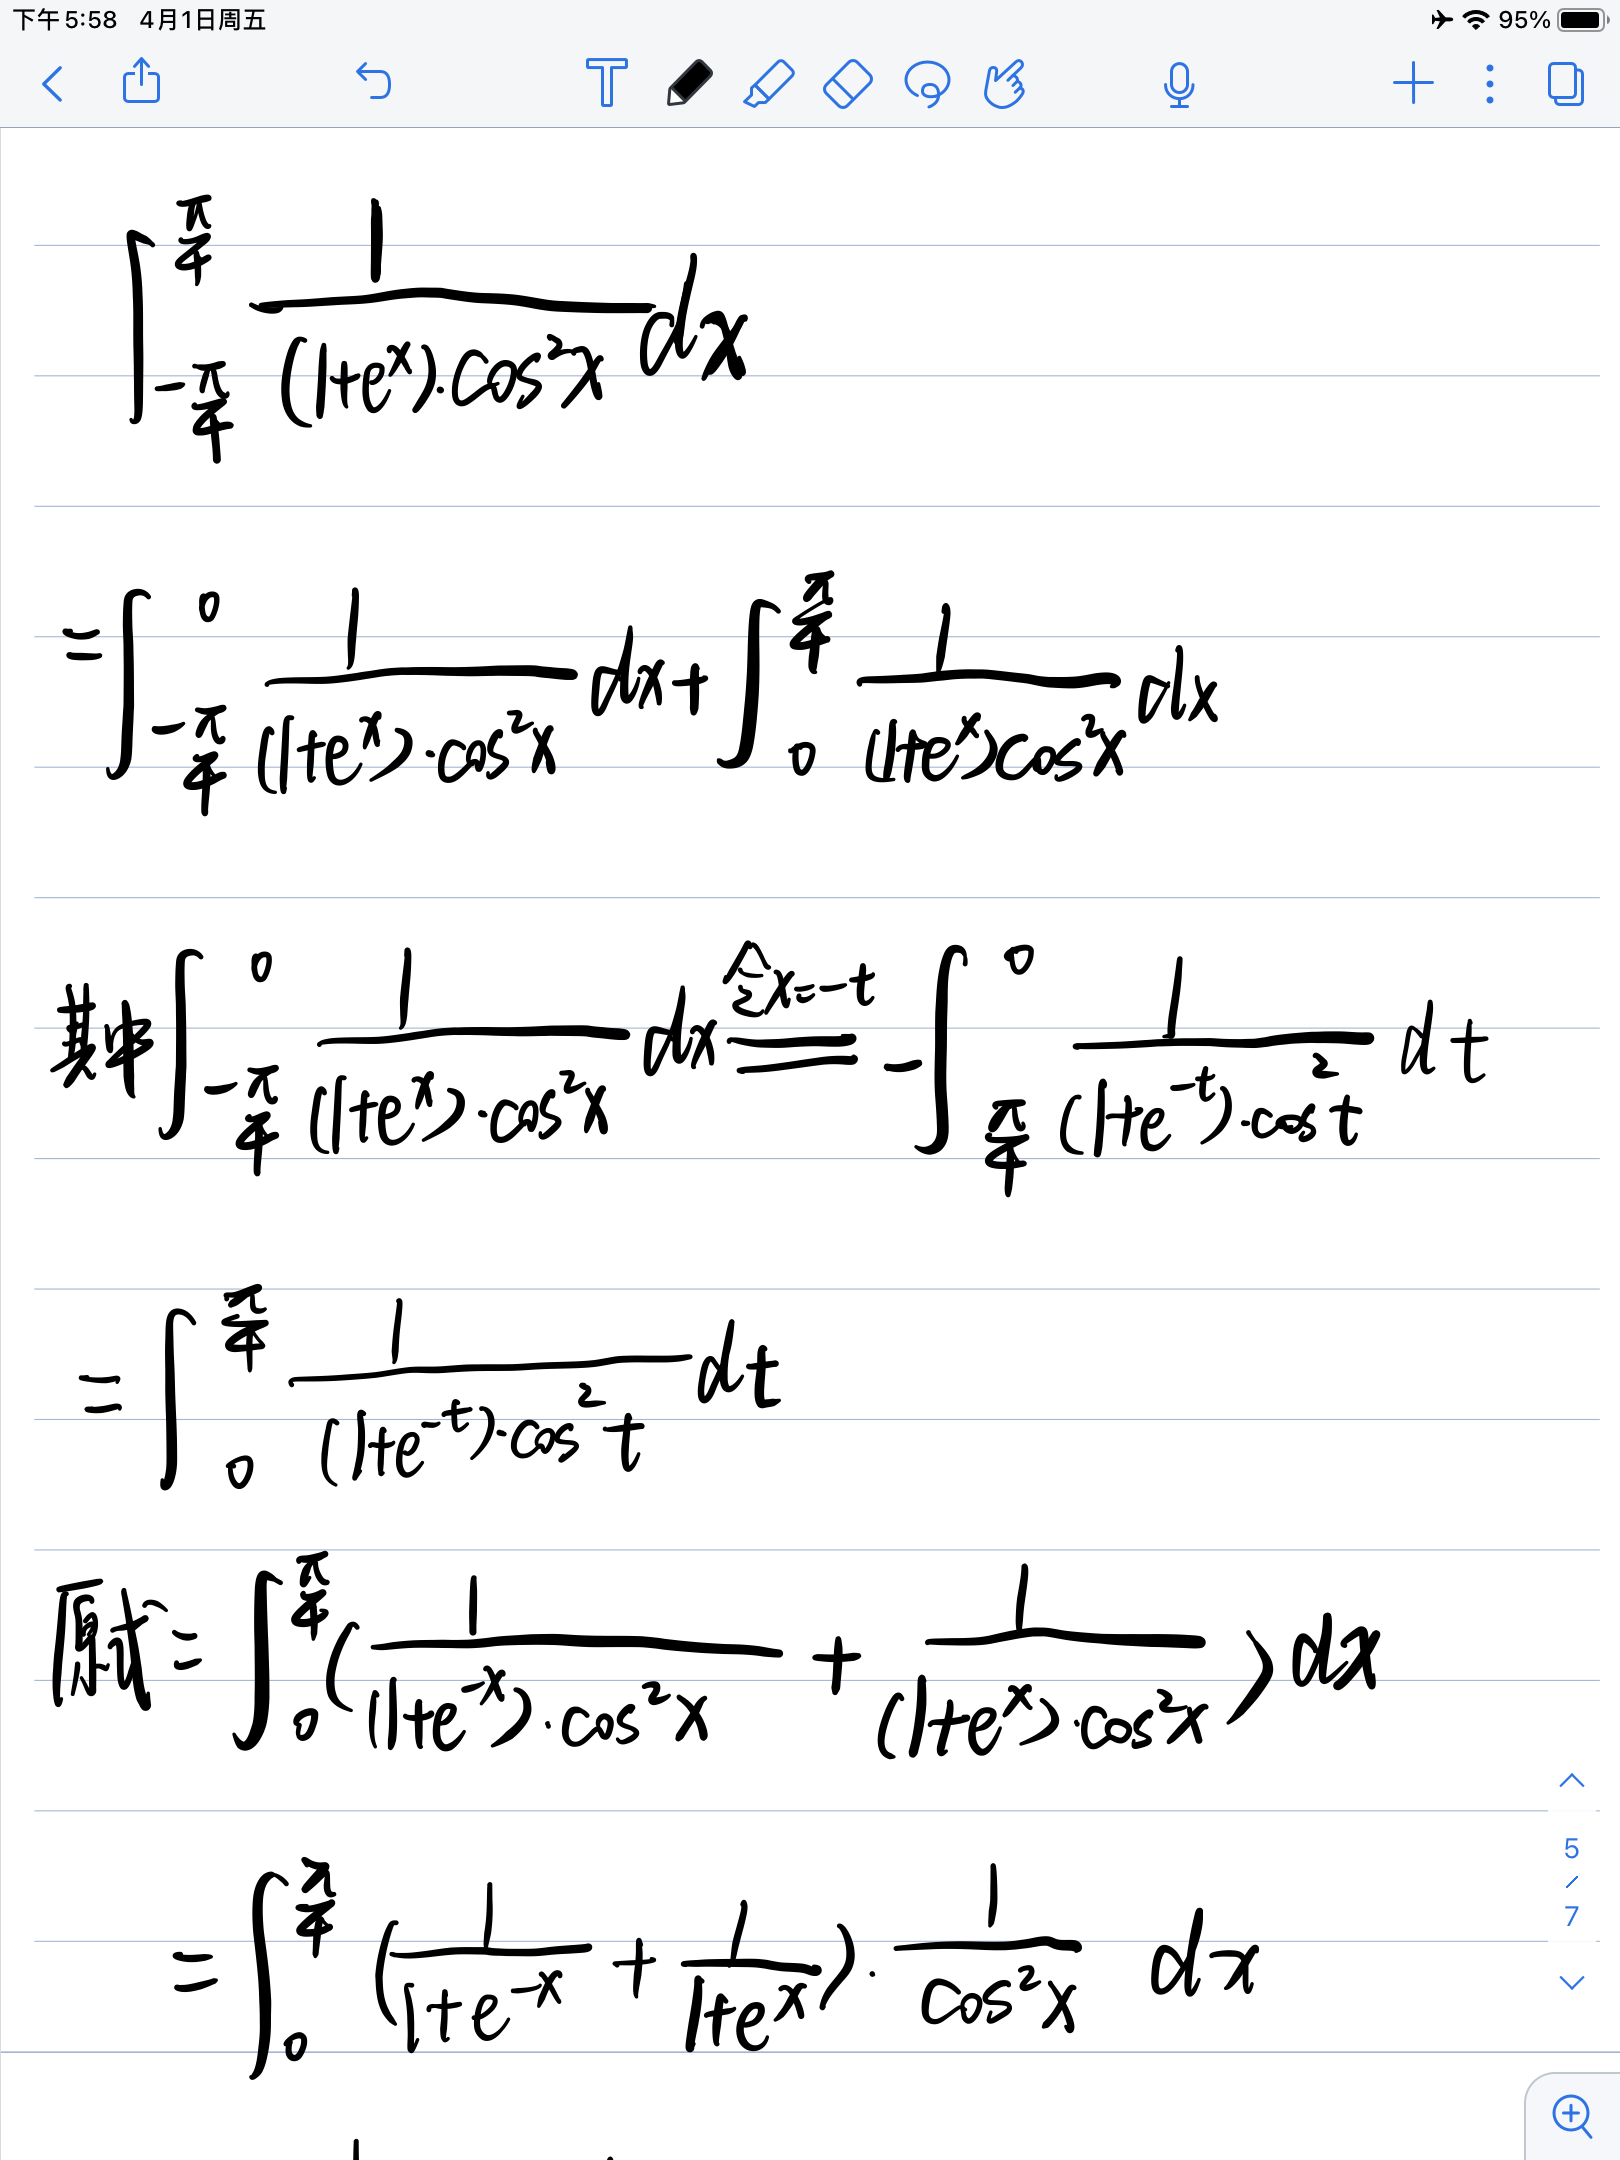 下午5:58 4月1日周五 95%
T
∫_{-π/4}^{π/4} 1/((1+e^x)·cos²x) dx
=∫_{-π/4}^{0} 1/((1+e^x)·cos²x) dx+∫_{0}^{π/4} 1/((1+e^x)cos²x) dx
其中∫_{-π/4}^{0} 1/((1+e^x)·cos²x) dx 令x=-t = -∫_{π/4}^{0} 1/((1+e^{-t})·cos²t) dt
=∫_{0}^{π/4} 1/((1+e^{-t})·cos²t) dt
原式=∫_{0}^{π/4} (1/((1+e^{-x})·cos²x) + 1/((1+e^x)·cos²x)) dx
=∫_{0}^{π/4} (1/(1+e^{-x}) + 1/(1+e^x))·1/cos²x dx
5/7